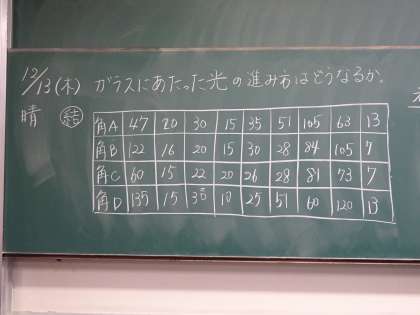 12/13(木) ガラスにあたった光の進み方はどうなるか。
晴 結
角A 47 20 30 15 35 51 105 63 13
角B 122 16 20 15 30 28 84 105 7
角C 60 15 22 20 26 28 81 73 7
角D 135 15 35 10 25 51 60 120 13